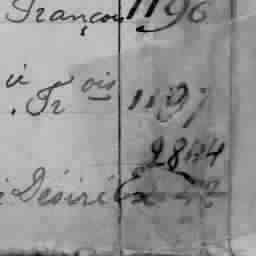 Françou 1196
ii
. Fr ois 1197
2844
Désiré Ex